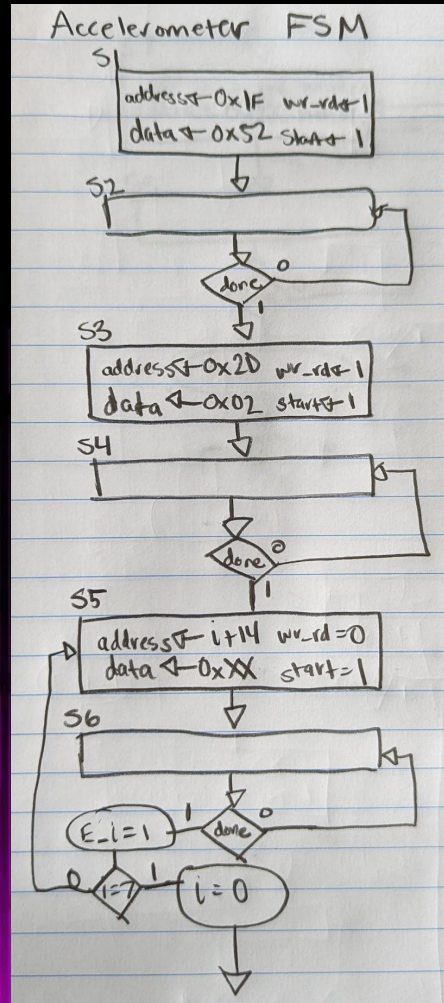 Accelerometer FSM
S1
address ← 0x1F wr_rd ← 1
data ← 0x52 start ← 1
S2
done
0
1
S3
address ← 0x2D wr_rd ← 1
data ← 0x02 start ← 1
S4
done
0
1
S5
address ← i+14 wr_rd = 0
data ← 0xXX start = 1
S6
E_i = 1
1
done
0
0
i=7
1
i = 0